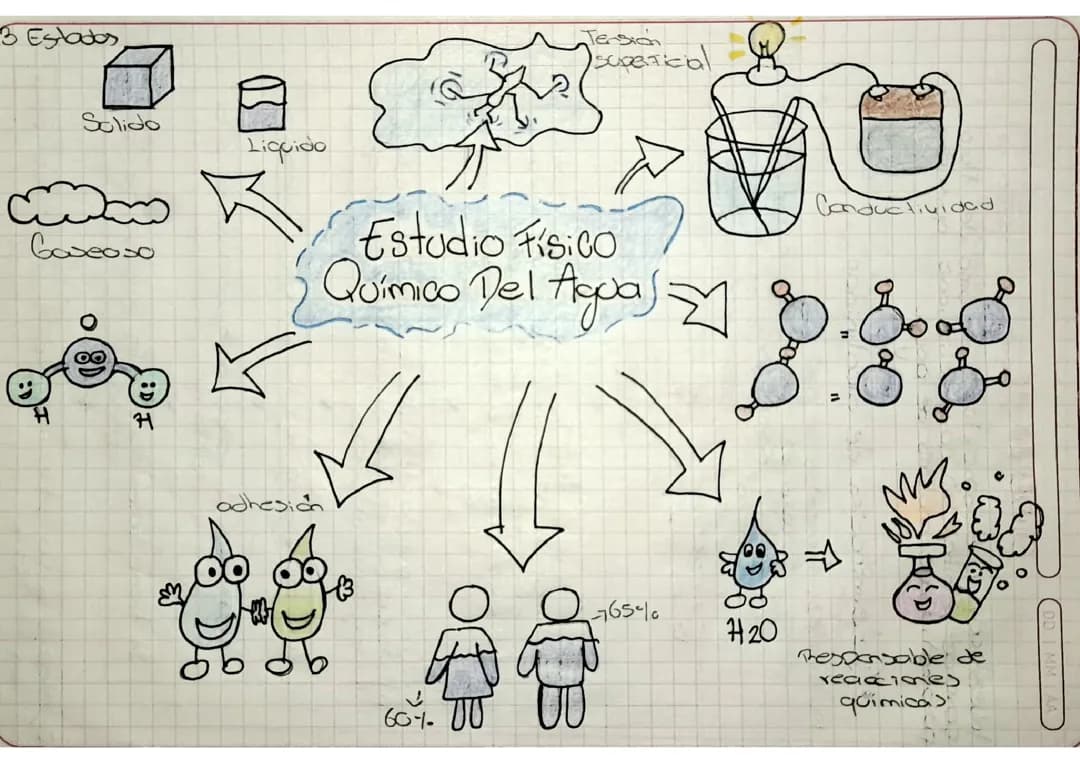 3 Estados
Solido
Liquido
Gaseoso
Tensión
superficial
Conductividad
Estudio Físico
Químico Del Agua
H
H
adhesión
60%
65%
H2O
Responsable de
reacciones
químicas
DD MM AA